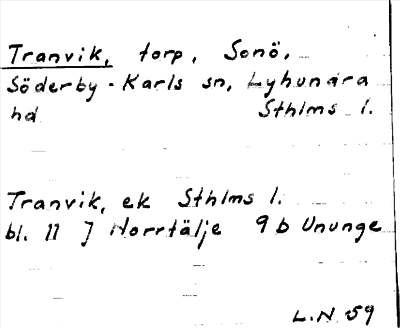 Tranvik, torp, Sonö,
Söderby-Karls sn, Lyhundra
hd Sthlms l.
Tranvik, ek Sthlms l.
bl. 11 J Norrtälje 9 b Ununge
L.N 59